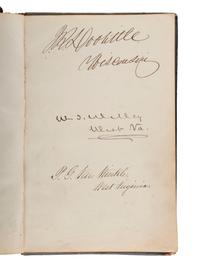 J. R. Doolittle
Wisconsin
W. T. Willey
West Va.
P. G. Van Winkle,
West Virginia